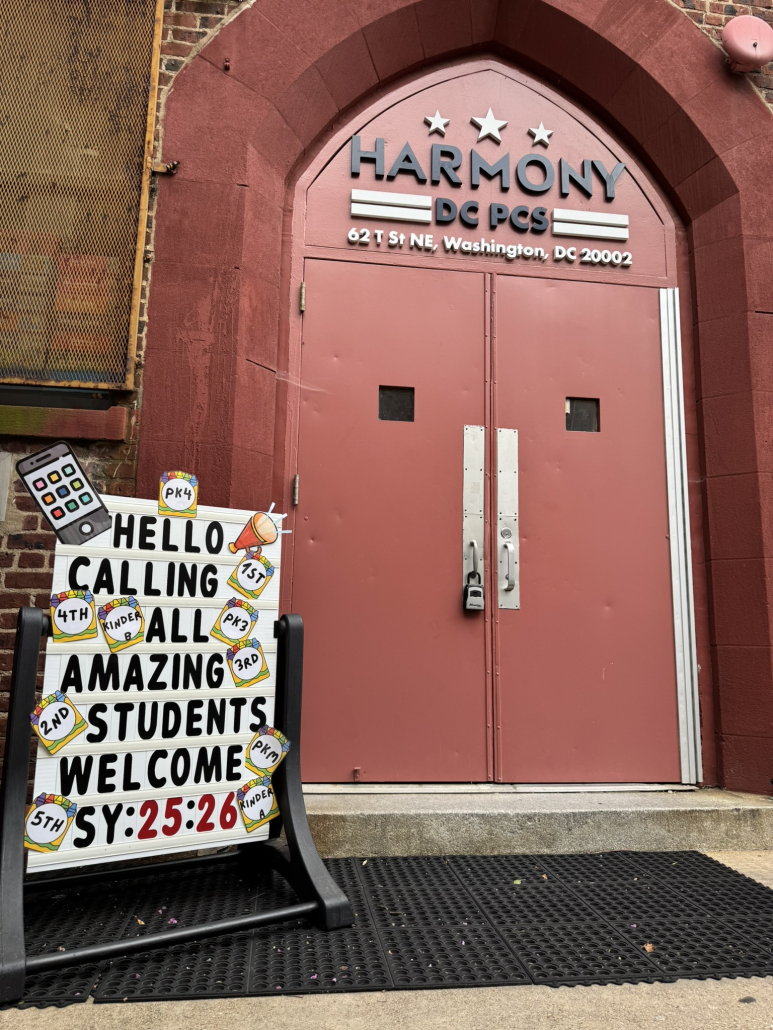 HARMONY
DC PCS
62 T St NE, Washington, DC 20002
PK4
HELLO
1ST
CALLING
4TH
KINDER B
ALL
PK3
AMAZING
3RD
2ND
STUDENTS
WELCOME
PKM
5TH
SY:25:26
KINDER A